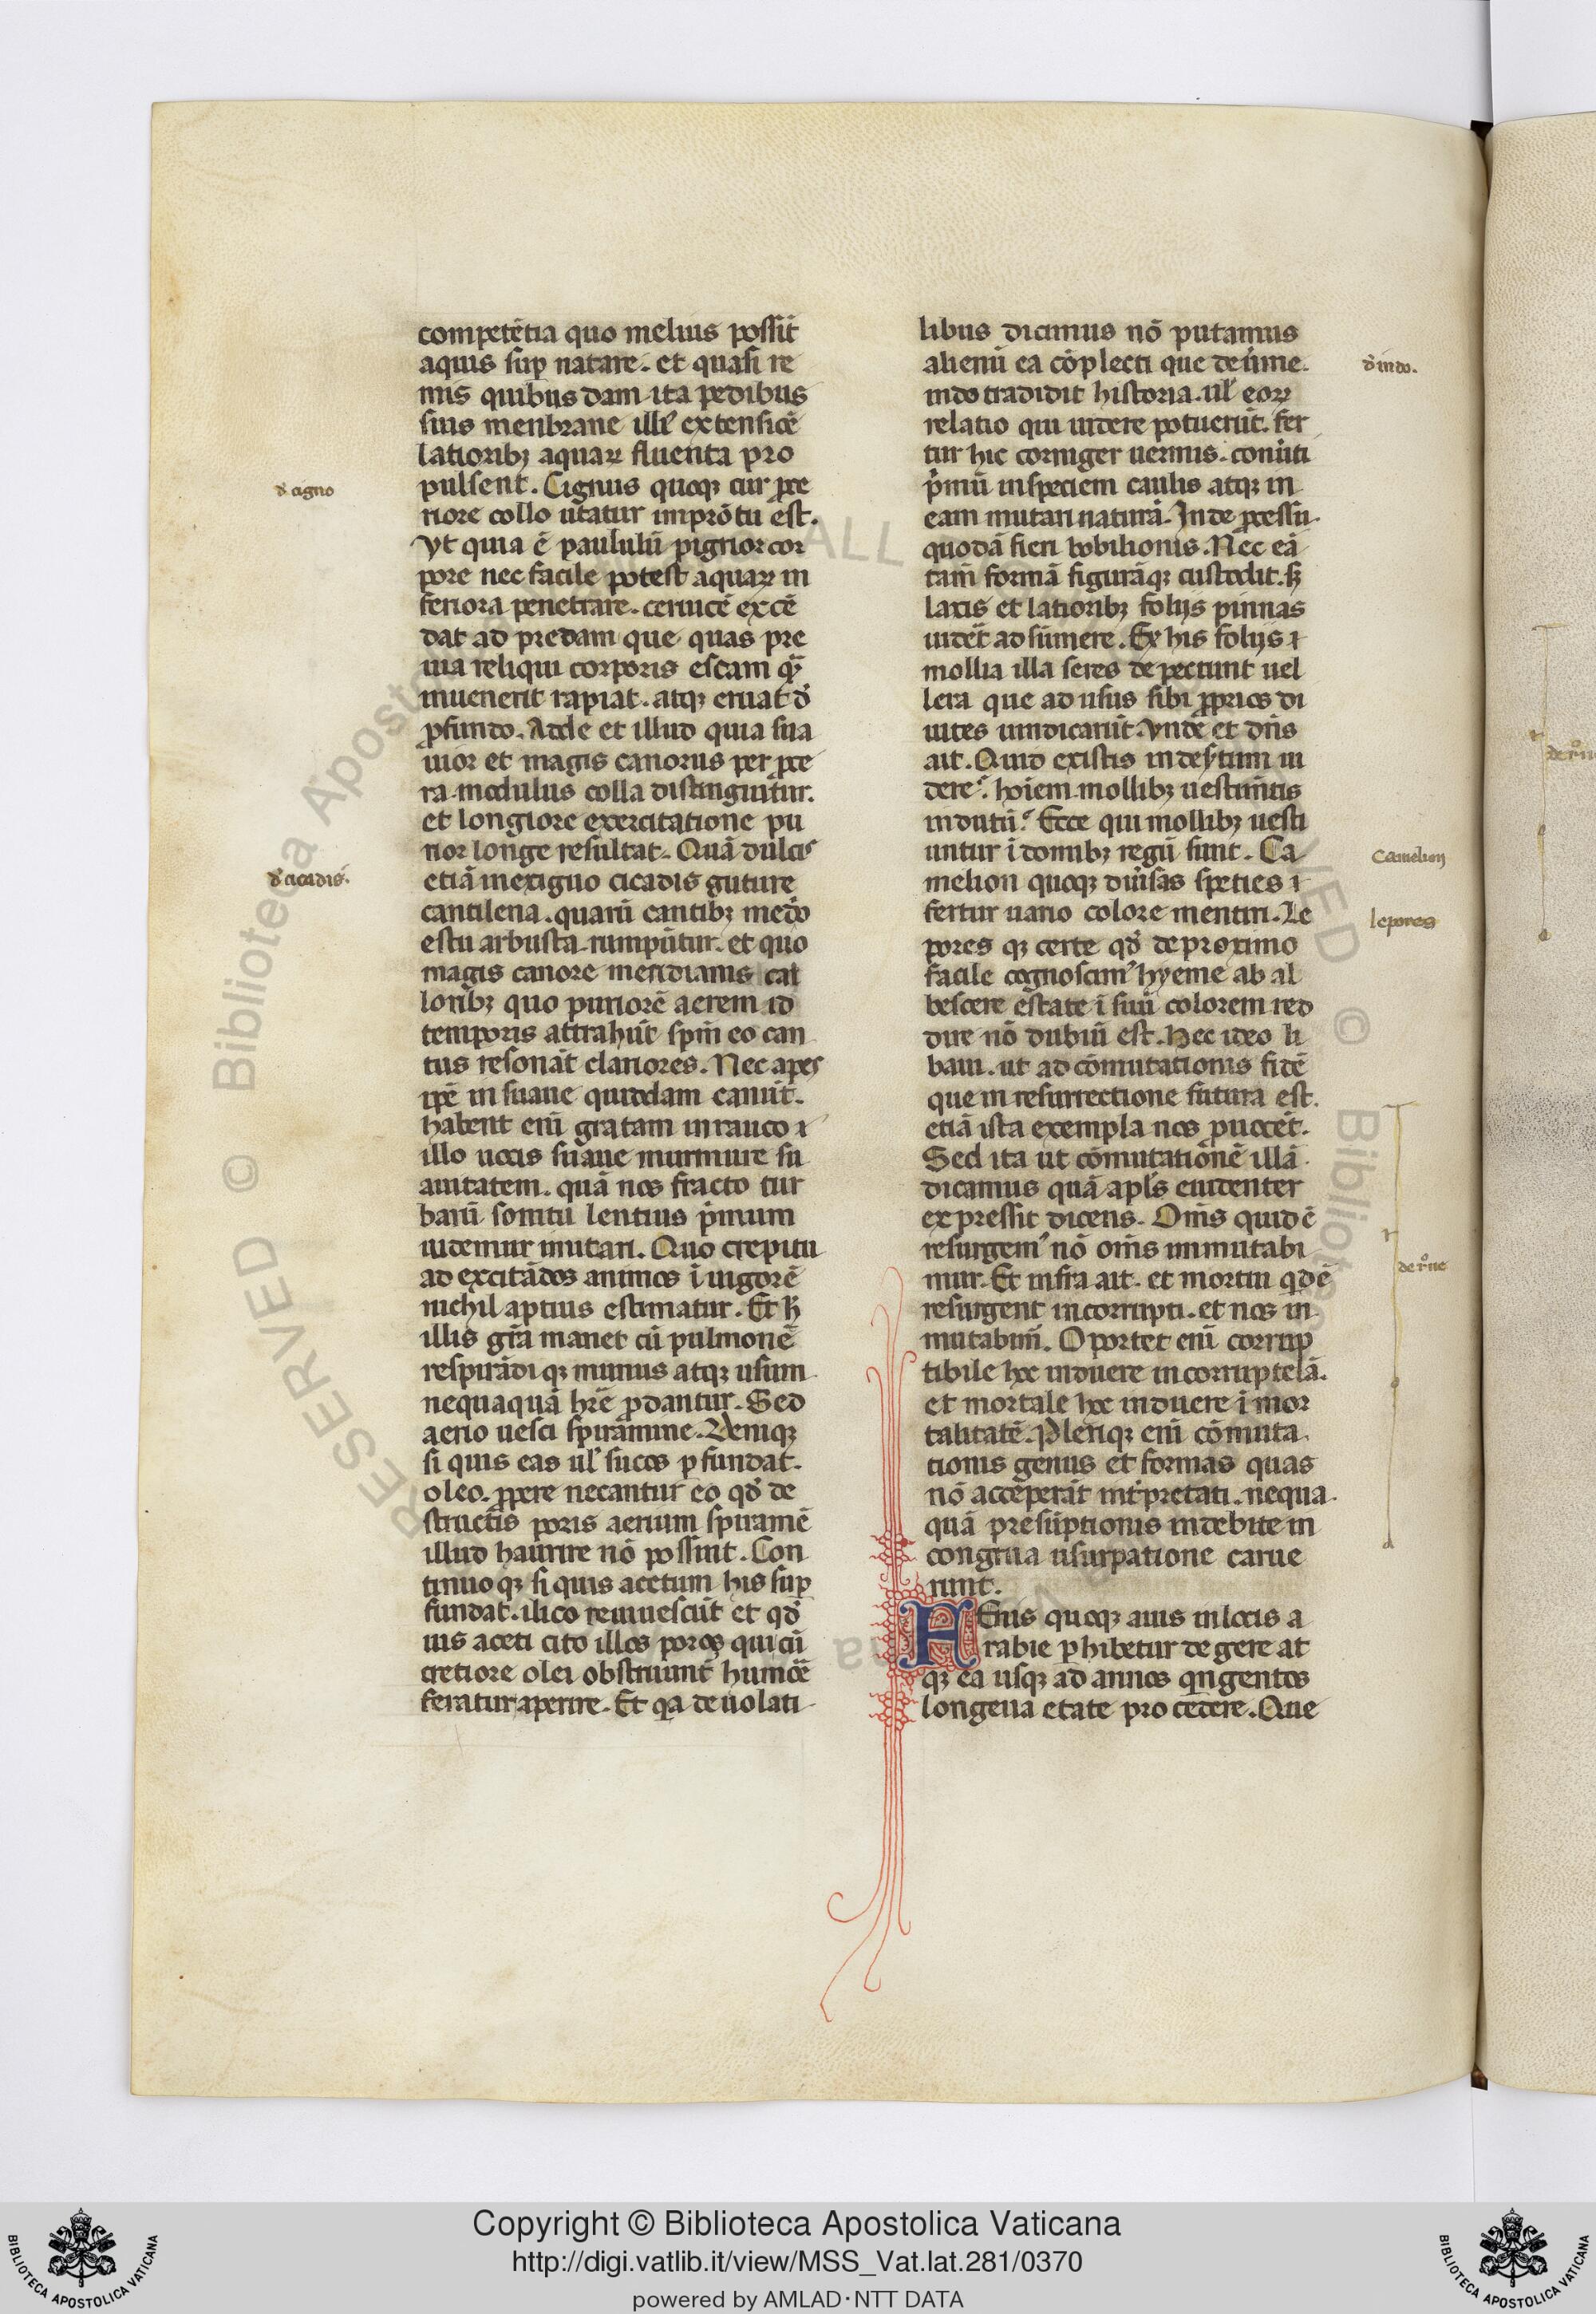 competētia quo melius possit̄
aquis sup̲ natare. et quasi re
mis quibus dam ita pedibus
suis menbrane illi᷒ extensicē
latioribꝫ aquaꝝ fluenta pro
pulsent. Cignus quoqꝫ cur ꝓce
riore collo utatur imprōtu est.
Vt quia ē paululū pigrior cor
pore nec facile potest aquaꝝ in
feriora penetrare. ceruicē excē
dat ad predam que quas pre
uia reliqui corporis escam qͣꝫ
inuenerit rapiat. atqꝫ eruat d̓
ꝓfundo. Adde et illud quia sua
uior et magis canorus per ꝓce
ra modulus colla distinguitur.
et longiore exercitatione pu
rior longe resultat. Quā dulcis
etiā in exiguo cicadis guture
cantilena. quarū cantibꝫ medio
estu arbusta rumpūtur. et quo
magis canore meridianis cal
loribꝫ quo puriorē aerem id
temporis attrahūt sp̄m eo can
tus resonāt clariores. Nec apes
ip̄e in suaue quiddam canūt.
habent enī gratam in rauco ⁊
illo uocis suaue murmure su
auitatem. quā nos fracto tur
barū sonitu lentius p̓mum
uidemur imitari. Quo crepitu
ad excitādos animos ī uigorē
nichil aptius estimatur. Et ꝧ
illis gr̄a manet cū pulmonē
respirādi qꝫ munus atqꝫ usum
nequaquā hr̄e ꝓdantur. Sed
aerio uesci spiramine. Deniqꝫ
si quis eas ul᷒ sucos ꝑfundat.
oleo. ꝓpere necantur eo qd̓ de
structis poris aerium spiramē
illud haurire nō possint. Con
tinuo qꝫ si quis acetum his sup̲
fundat. ilico reuiuescūt et qd̓
uis aceti cito illos poros qui cū
cretiore olei obstruunt humōē
feratur aperire. Et qͣa de uolati
libus dicimus nō putamus
alienū ea cōplecti que de ūme.
indo tradidit historia. ul᷒ eoꝝ
relatio qui uidere potuerūt. fer
tur hic corniger uermis. conūti
p̓mū in speciem caulis atqꝫ in
eam mutari naturā. Inde ꝓcessu
quodā fieri bobilionis. Nec eā
tam̄ formā figurāqꝫ custodit. sꝫ
laxis et latioribꝫ folijs pinnas
uidet̄ ad sūmere. Ex his folijs ⁊
mollia illa seres depectunt uel
lera que ad usus sibi ꝓprios di
uites uindicarūt. Vnde et dn̄s
ait. Quid existis in deẏtum ui
dere? hoīem mollibꝫ uestim̄tis
indutū? Ecce qui mollibꝫ uesti
untur ī domibꝫ regū sunt. Ca
melion quoqꝫ diūsas speties ⁊
fertur uario colore mentiri. Le
pores qꝫ certe qd̓ de proximo
facile cognoscim᷒ hyeme ab al
bescere estate ī suū colorem red
dire nō dubiū est. Hec ideo li
baui. ut ad cōmutationis fidē
que in resurrectione futura est.
etiā ista exempla nos ꝓuocēt.
Sed ita ut cōmutationē illā
dicamus quā apl̓s euidenter
expressit dicens. Om̄s quidē
resurgem᷒ nō om̄s inmutabi
mur. Et infra ait. et mortui qͥdē
resurgent incorrupti. et nos in
mutabim̄. Oportet enī corrup
tibile hoc induere incorruptelā.
et mortale hoc induere ī mor
talitatē. Pleriqꝫ enī cōmuta
tionis genus et formas quas
nō acceperāt int̓pretati. nequa
quā presūptionis indebite in
congrua usurpatione carue
runt.
Fenis quoqꝫ auis in locis a
rabie ꝑhibetur degere at
qꝫ ea usqꝫ ad annos qͥngentos
longeua etate procedere. Que
d̓ cigno
d̓ cicadis.
d̓ indo.
Camelion
lepores
de r̓ne
Copyright © Biblioteca Apostolica Vaticana
http://digi.vatlib.it/view/MSS_Vat.lat.281/0370
powered by AMLAD·NTT DATA
BIBLIOTECA APOSTOLICA VATICANA
BIBLIOTECA APOSTOLICA VATICANA